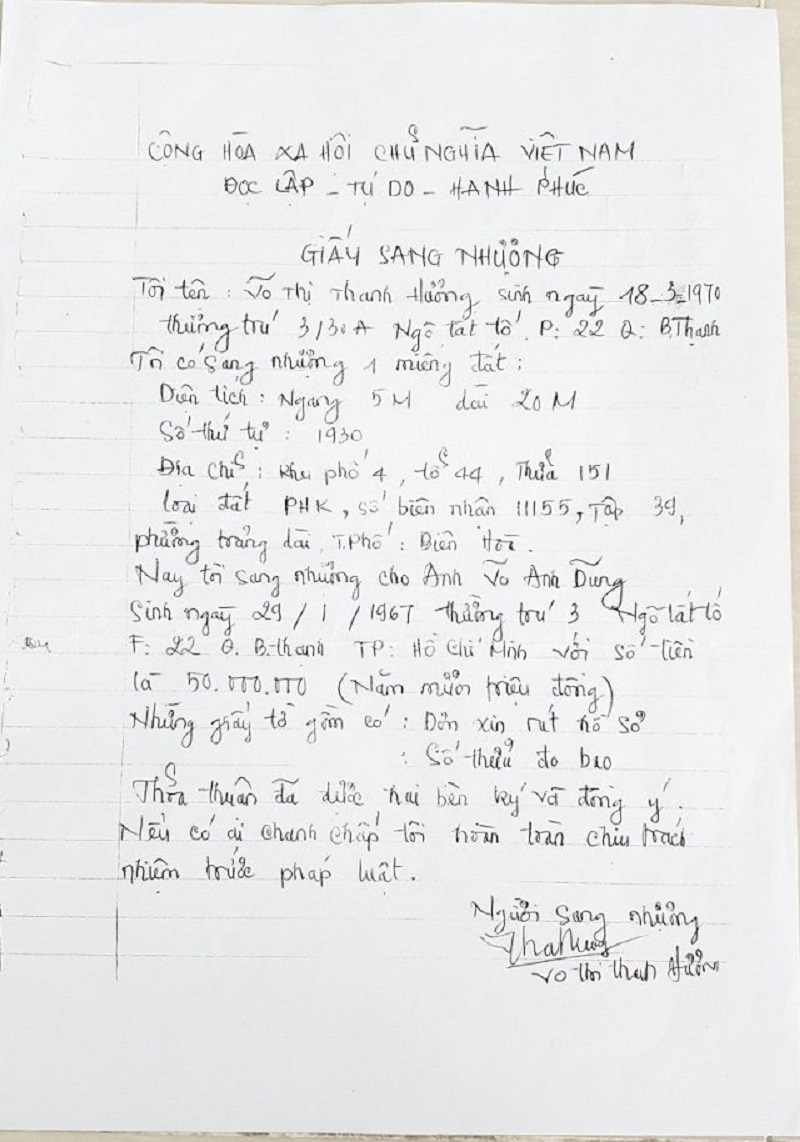 CỘNG HÒA XA HÔI CHỦ NGHĨA VIÊT NAM
ĐỌC LẬP - TỰ DO - HANH PHÚC
GIẤY SANG NHƯỢNG
Tôi tên : Võ Thị Thanh Hưởng sinh ngaỳ 18-3-1970
thường trú 3/30A Ngô tất tố. P: 22 Q: B.Thạnh
Tôi có sang nhượng 1 miêng đất :
Diên tích : Ngang 5M dài 20M
Số thứ tự : 1930
Địa chỉ : khu phố 4, tổ 44, Thửa 151
loại đất PHK, số biên nhân 11155, Tập 39,
phường trảng dài, T.Phố : Biên Hòa.
Nay tôi sang nhường cho Anh Võ Anh Dũng
Sinh ngaỳ 29/1/1967 thường trú 3 Ngô tất tố
F: 22 Q. B.thanh TP: Hồ Chí Minh với số tiền
là 50.000.000 (Năm mươi triệu đồng)
Những giấy tờ gồm có : Đơn xin rút hồ sơ
: Số thửa đo bao
Thỏa thuân đã được hai bên ký và đồng ý.
Nếu có ai chanh chấp tôi hoàn toàn chiu trách
nhiệm trước pháp luật.
Người sang nhượng
Vo thi thanh Hưởng